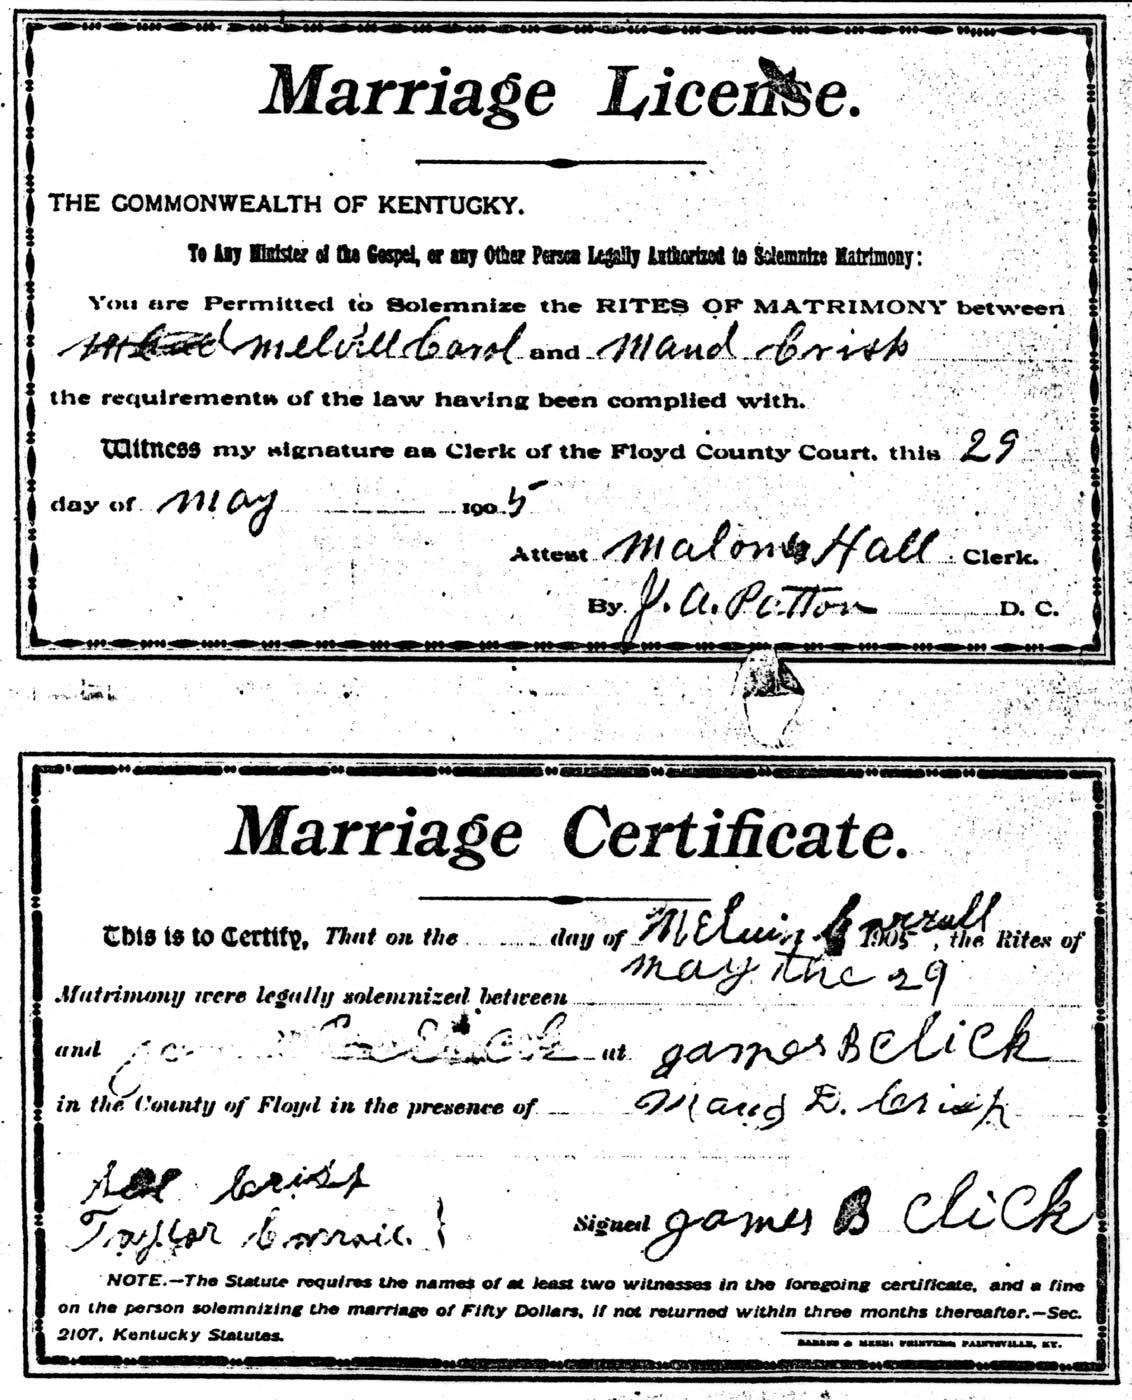 Marriage License.
THE COMMONWEALTH OF KENTUCKY.
To Any Minister of the Gospel, or any Other Person Legally Authorized to Solemnize Matrimony:
You are Permitted to Solemnize the RITES OF MATRIMONY between
Melvill Carol and Maud Crisp
the requirements of the law having been complied with.
Witness my signature as Clerk of the Floyd County Court, this 29
day of May 1905
Attest Malone Hall Clerk.
By J. A. Patton D. C.
Marriage Certificate.
This is to Certify, That on the day of Melvin Carrall 1905, the Rites of
May the 29
Matrimony were legally solemnized between
and at James B Click
in the County of Floyd in the presence of Maud D. Crisp
Crisp
Taylor
Signed James B Click
NOTE.—The Statute requires the names of at least two witnesses in the foregoing certificate, and a fine
on the person solemnizing the marriage of Fifty Dollars, if not returned within three months thereafter.—Sec.
2107, Kentucky Statutes.
PRINTERS PAINTSVILLE, KY.